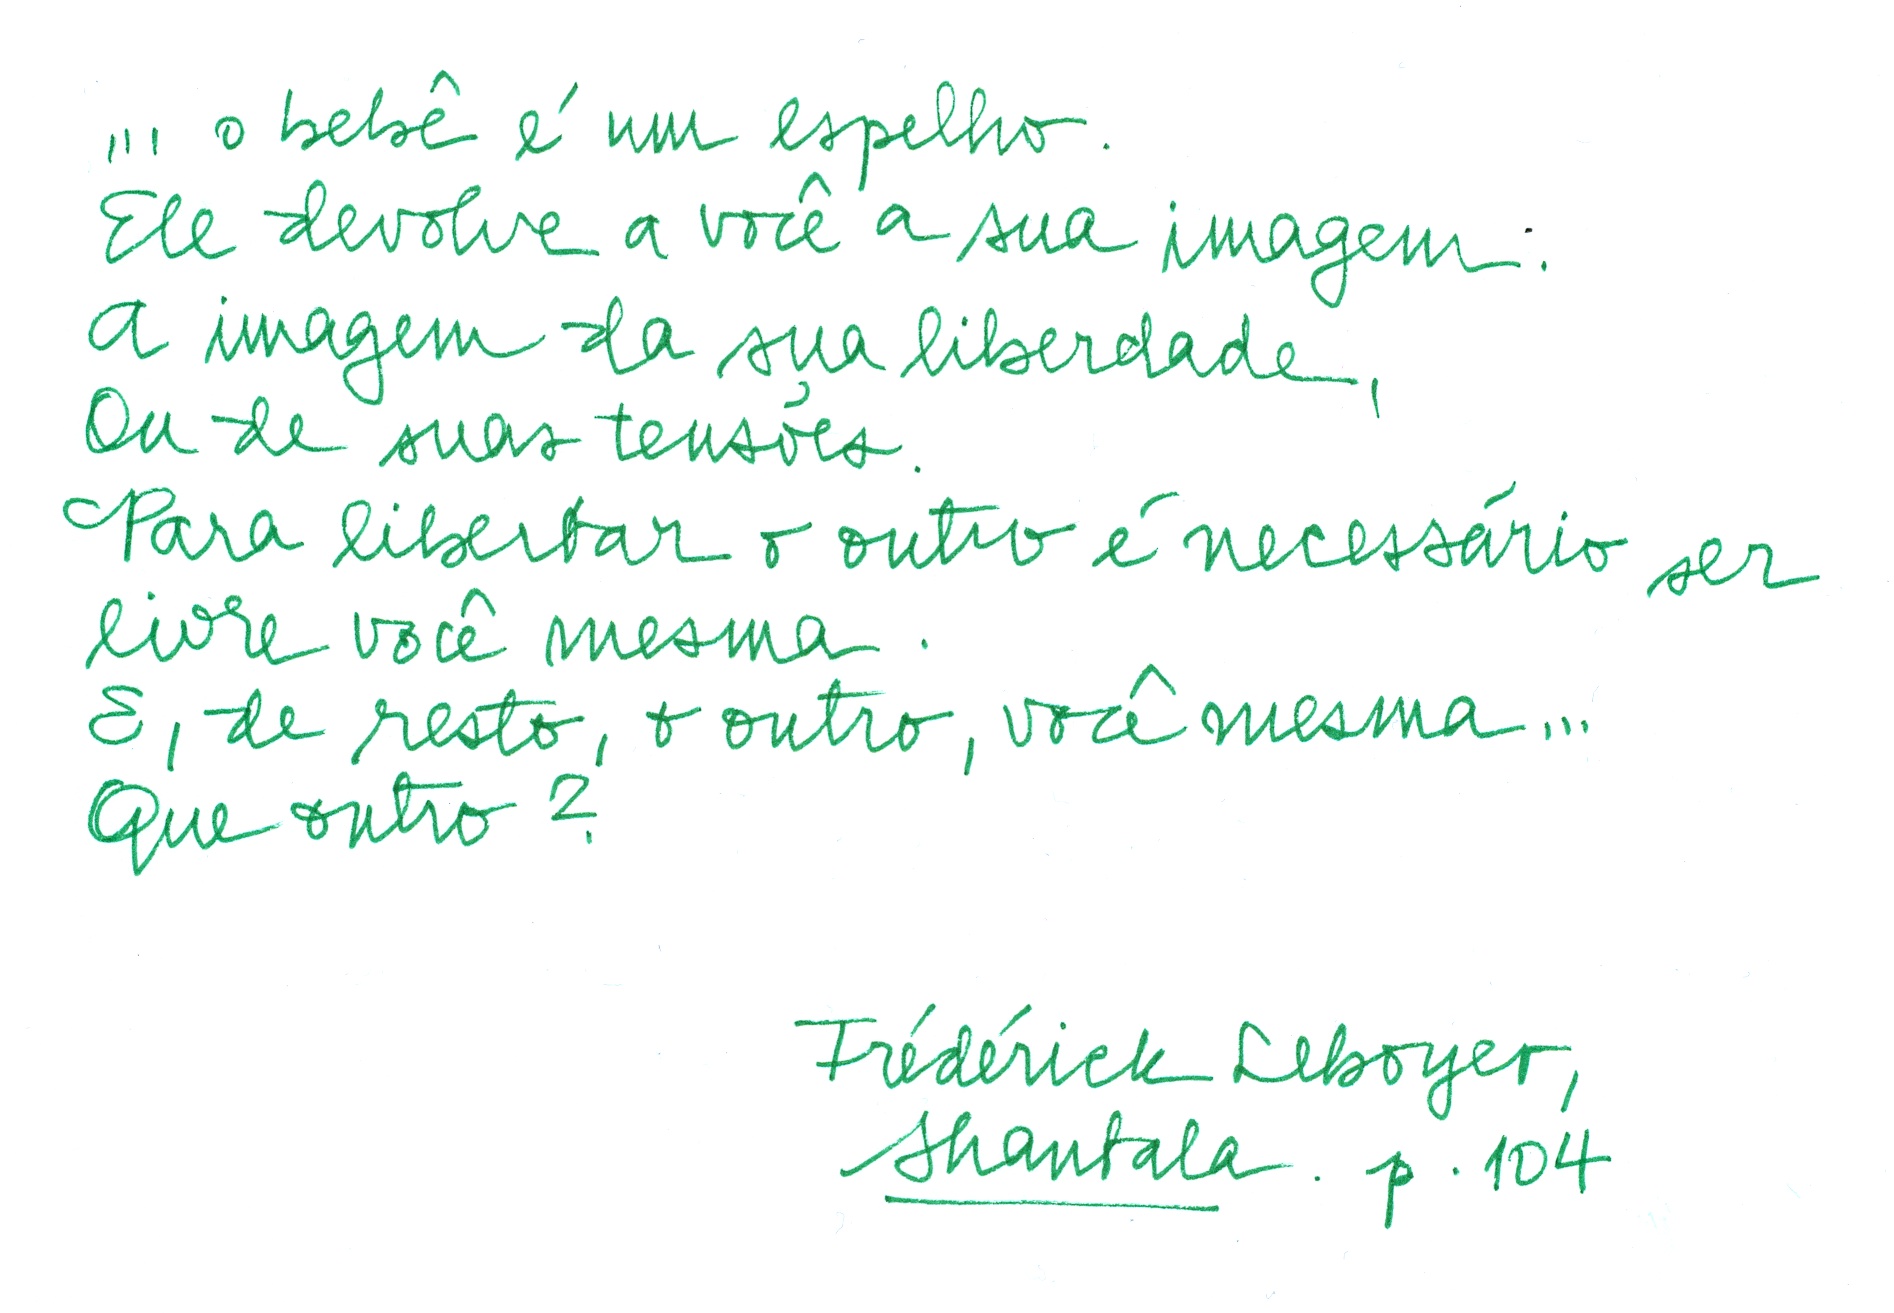 ... o bebê é um espelho.
Ele devolve a você a sua imagem:
A imagem da sua liberdade,
Ou de suas tensões.
Para libertar o outro é necessário ser
livre você mesma.
E, de resto, o outro, você mesma...
Que outro?
Frédérick Leboyer,
Shantala. p. 104